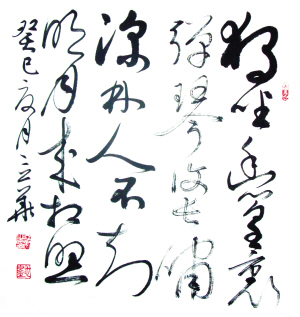 独坐幽篁里
弹琴复长啸
深林人不知
明月来相照
癸巳夏月立华